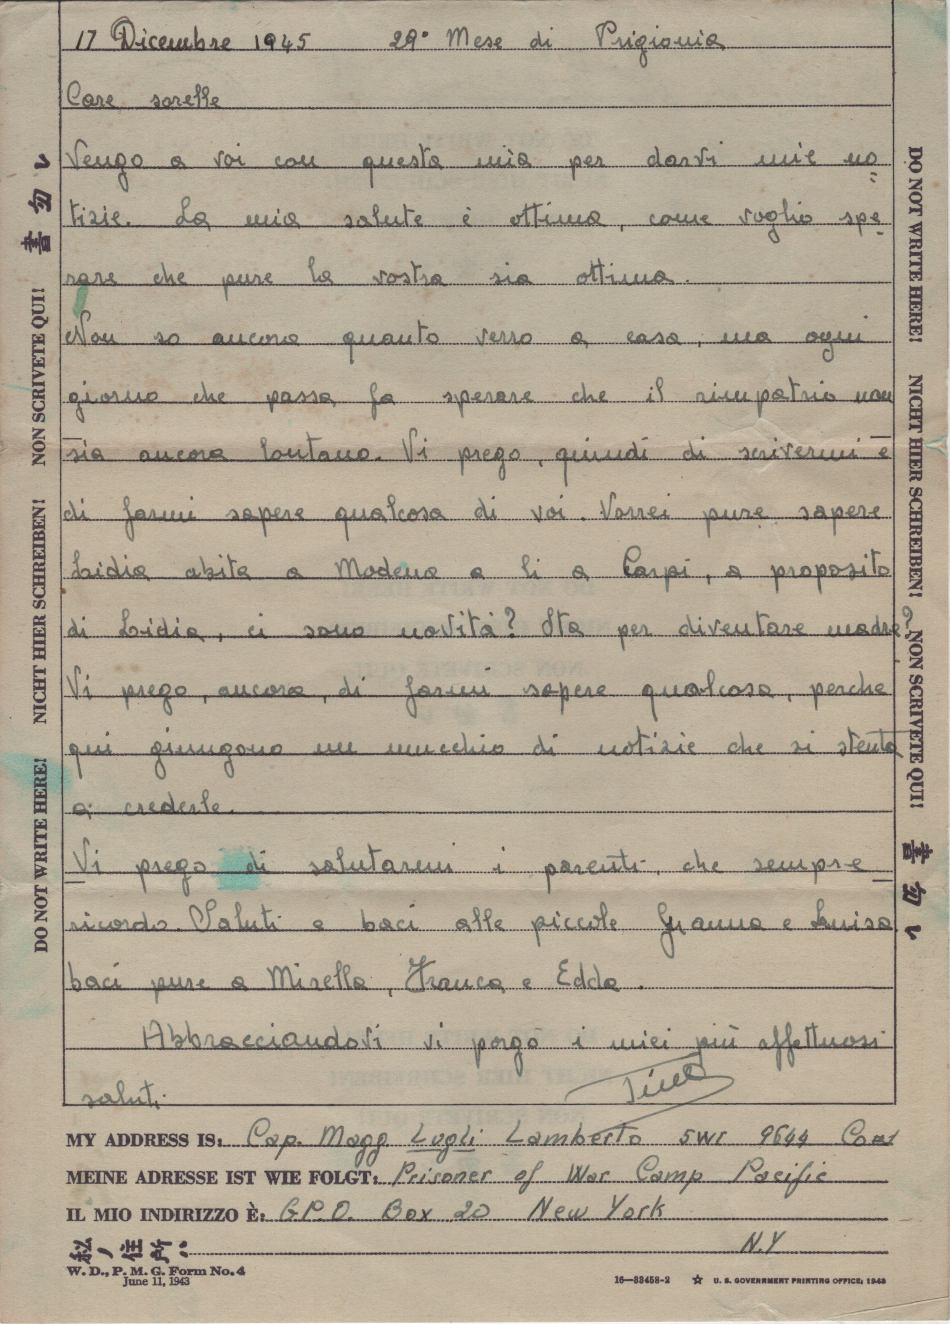 17 Dicembre 1945 29° Mese di Prigionia
Care sorelle
Vengo a voi con questa mia per darvi mie no
tizie. La mia salute è ottima, come voglio spe
rare che pure la vostra sia ottima.
Non so ancora quanto verro a casa, ma ogni
giorno che passa fa sperare che il rimpatrio non
sia ancora lontano. Vi prego, quindi di scrivermi e
di farmi sapere qualcosa di voi. Vorrei pure sapere
Lidia abita a Modena a li a Carpi, a proposito
di Lidia, ci sono novità? Sta per diventare madre?
Vi prego, ancora, di farmi sapere qualcosa, perche
qui giungono un mucchio di notizie che si stenta
a crederle.
Vi prego di salutarmi i parenti, che sempre
ricordo. Saluti e baci alle piccole Gianna e Luisa
baci pure a Mirella, Franca e Edda.
Abbracciandovi vi porgo i miei più affettuosi
saluti
MY ADDRESS IS: Cap. Magg Lugli Lamberto 5WI 9644
MEINE ADRESSE IST WIE FOLGT: Prisoner of War Camp Pacific
IL MIO INDIRIZZO È: G.P.O. Box 20 New York
私ノ住所: N.Y
W. D., P. M. G. Form No. 4
June 11, 1943
16—33458-2 ☆ U. S. GOVERNMENT PRINTING OFFICE: 1943
DO NOT WRITE HERE! NICHT HIER SCHREIBEN! NON SCRIVETE QUI! 書勿レ
DO NOT WRITE HERE! NICHT HIER SCHREIBEN! NON SCRIVETE QUI! 書勿レ